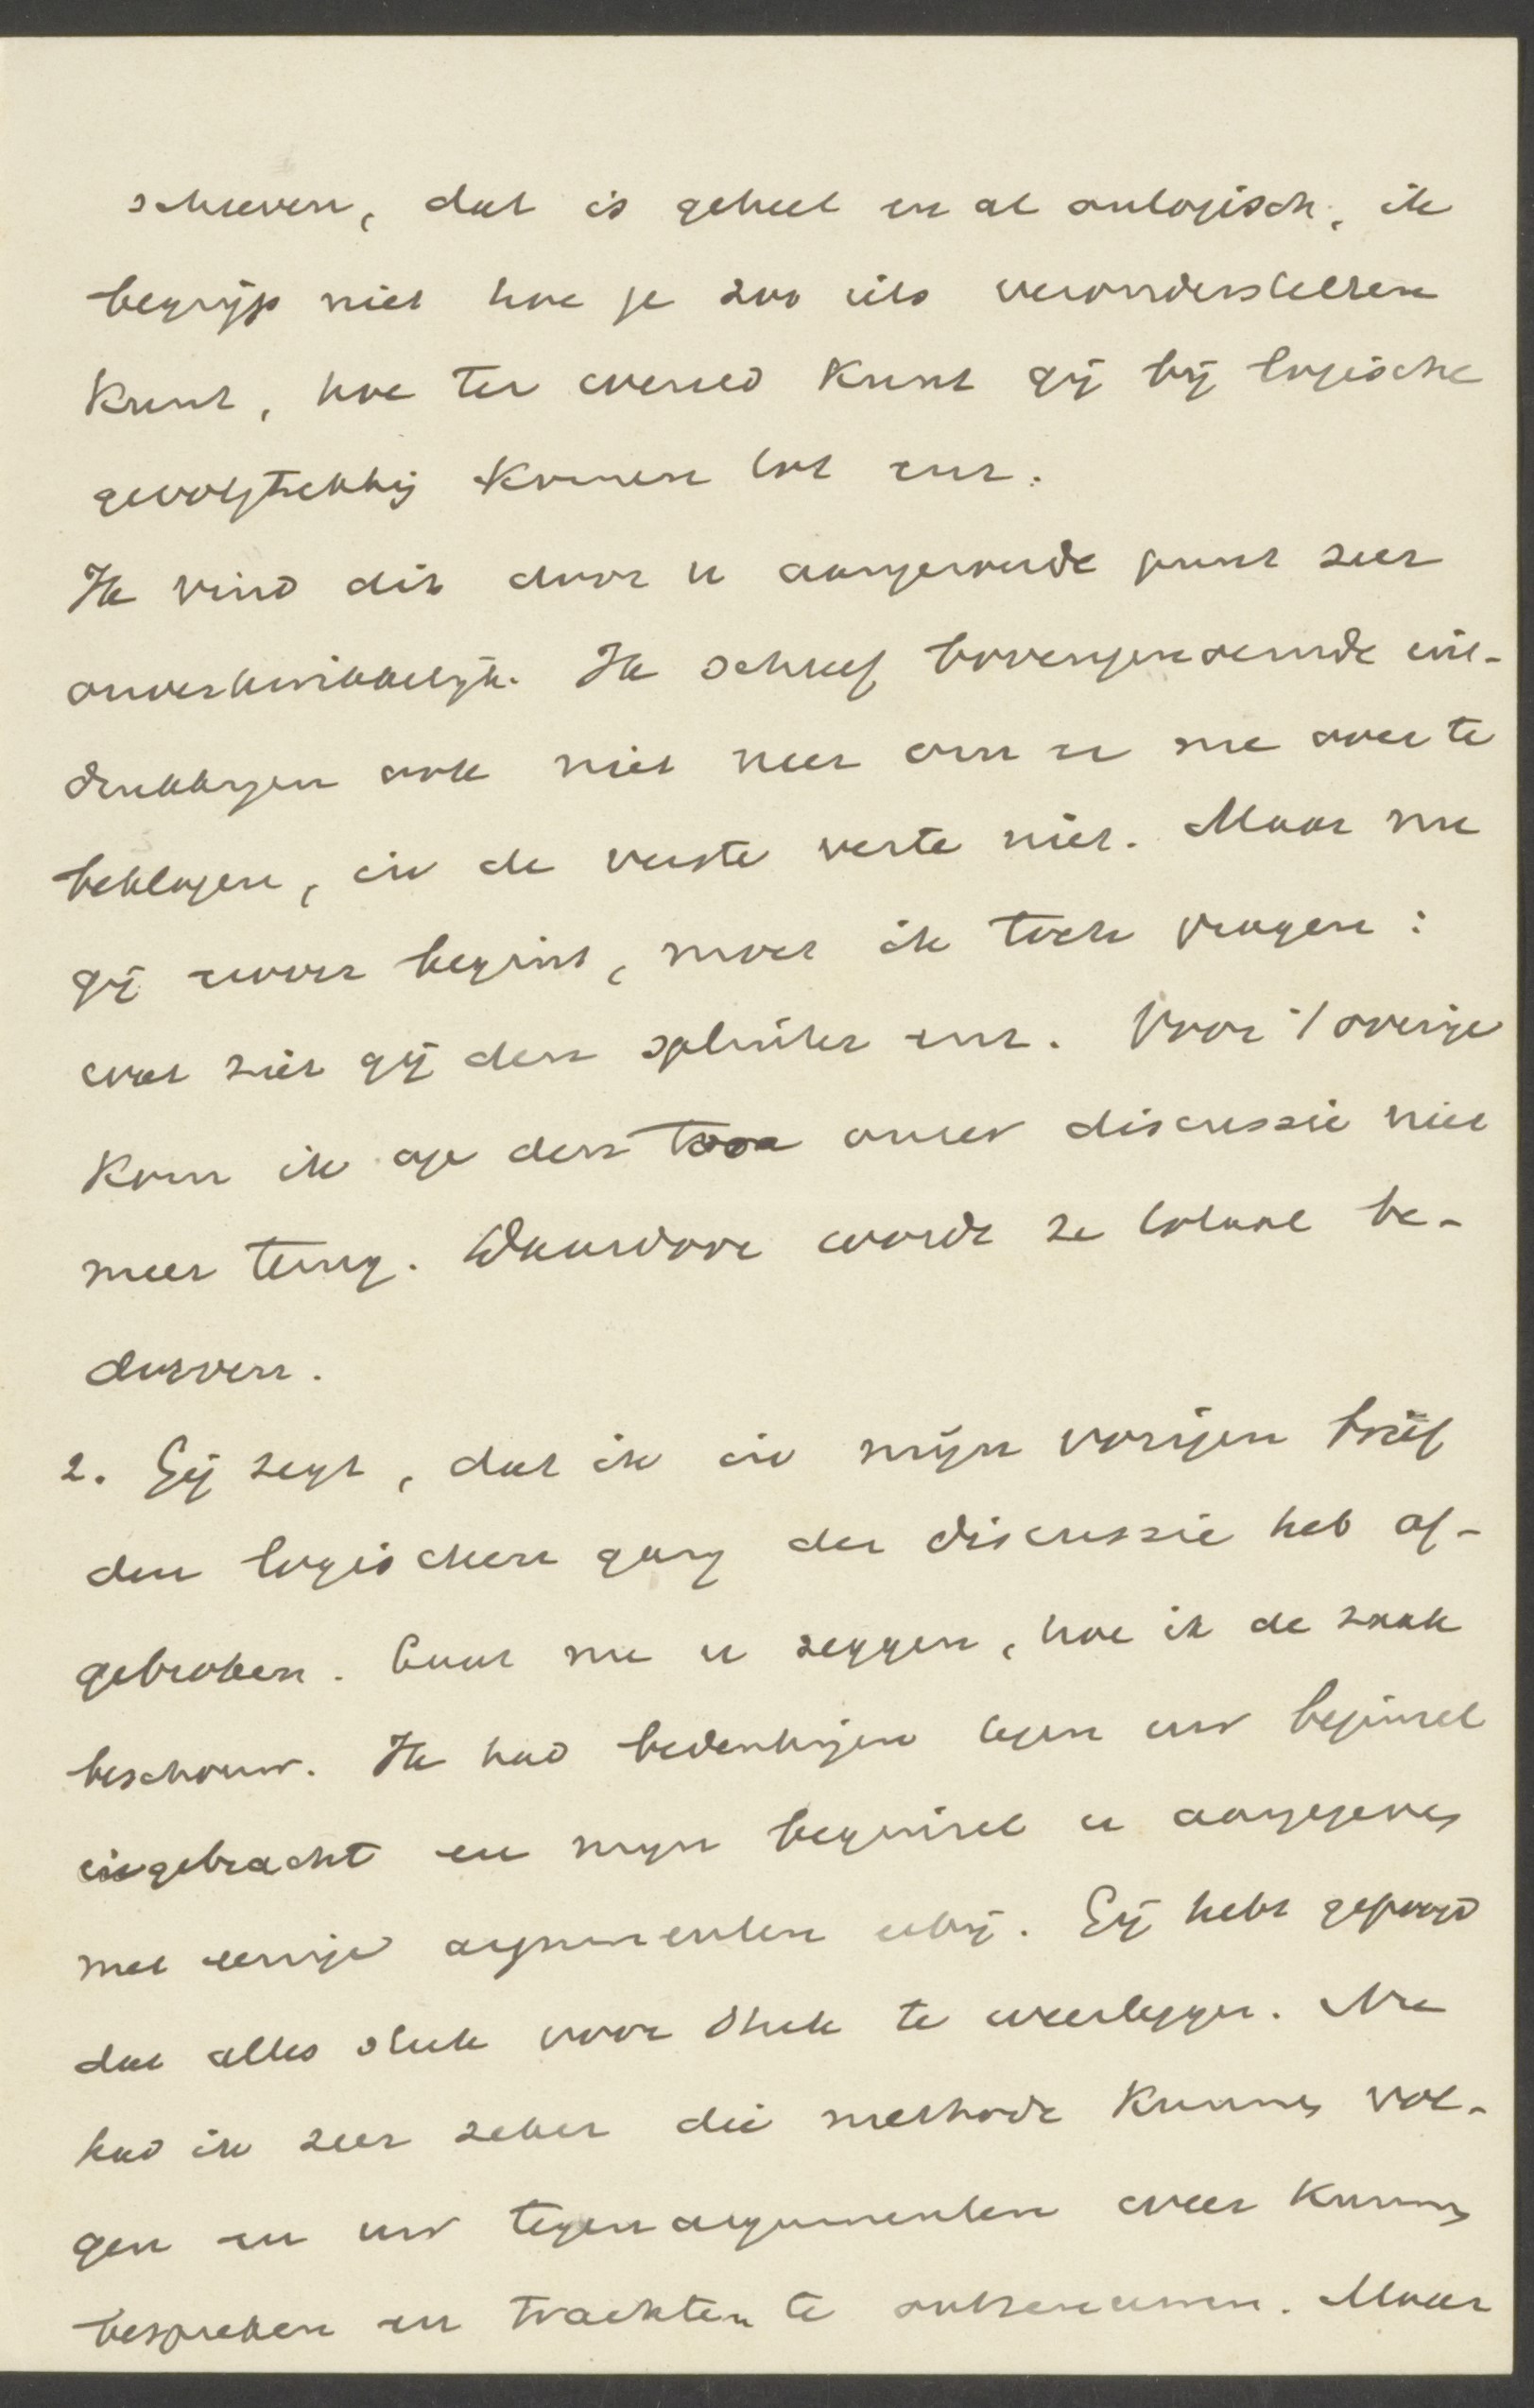 schreven, dat is geheel en al onlogisch, ik
begrijp niet hoe je zoo iets veronderstellen
kunt, hoe ter wereld kunt gij bij logische
gevolgtrekkig komen tot enz.
Ik vind dit door u aangeroerde punt zeer
onverkwikkelijk. Ik schreef bovengenoemde uit-
drukkigen ook niet neer om er me over te
beklagen, in de verste verte niet. Maar nu
gij erover begint, moet ik toch vragen:
wat ziet gij den splinter enz. Voor 't overige
kom ik op den toon onzer discussie niet
meer terug. Daardoor wordt ze totaal be-
dorven.
2. Gij zegt, dat ik in mijn vorigen brief
den logischen gang der discussie heb af-
gebroken. Laat me u zeggen, hoe ik de zaak
beschouw. Ik had bedenkigen tegen uw beginsel
ingebracht en mijn beginsel u aangegeven
met eenige argumenten erbij. Gij hebt gepoogd
dat alles stuk voor stuk te weerleggen. Nu
had ik zeer zeker die methode kunnen vol-
gen en uw tegenargumenten weer kunnen
bespreken en trachten te ontzenuwen. Maar